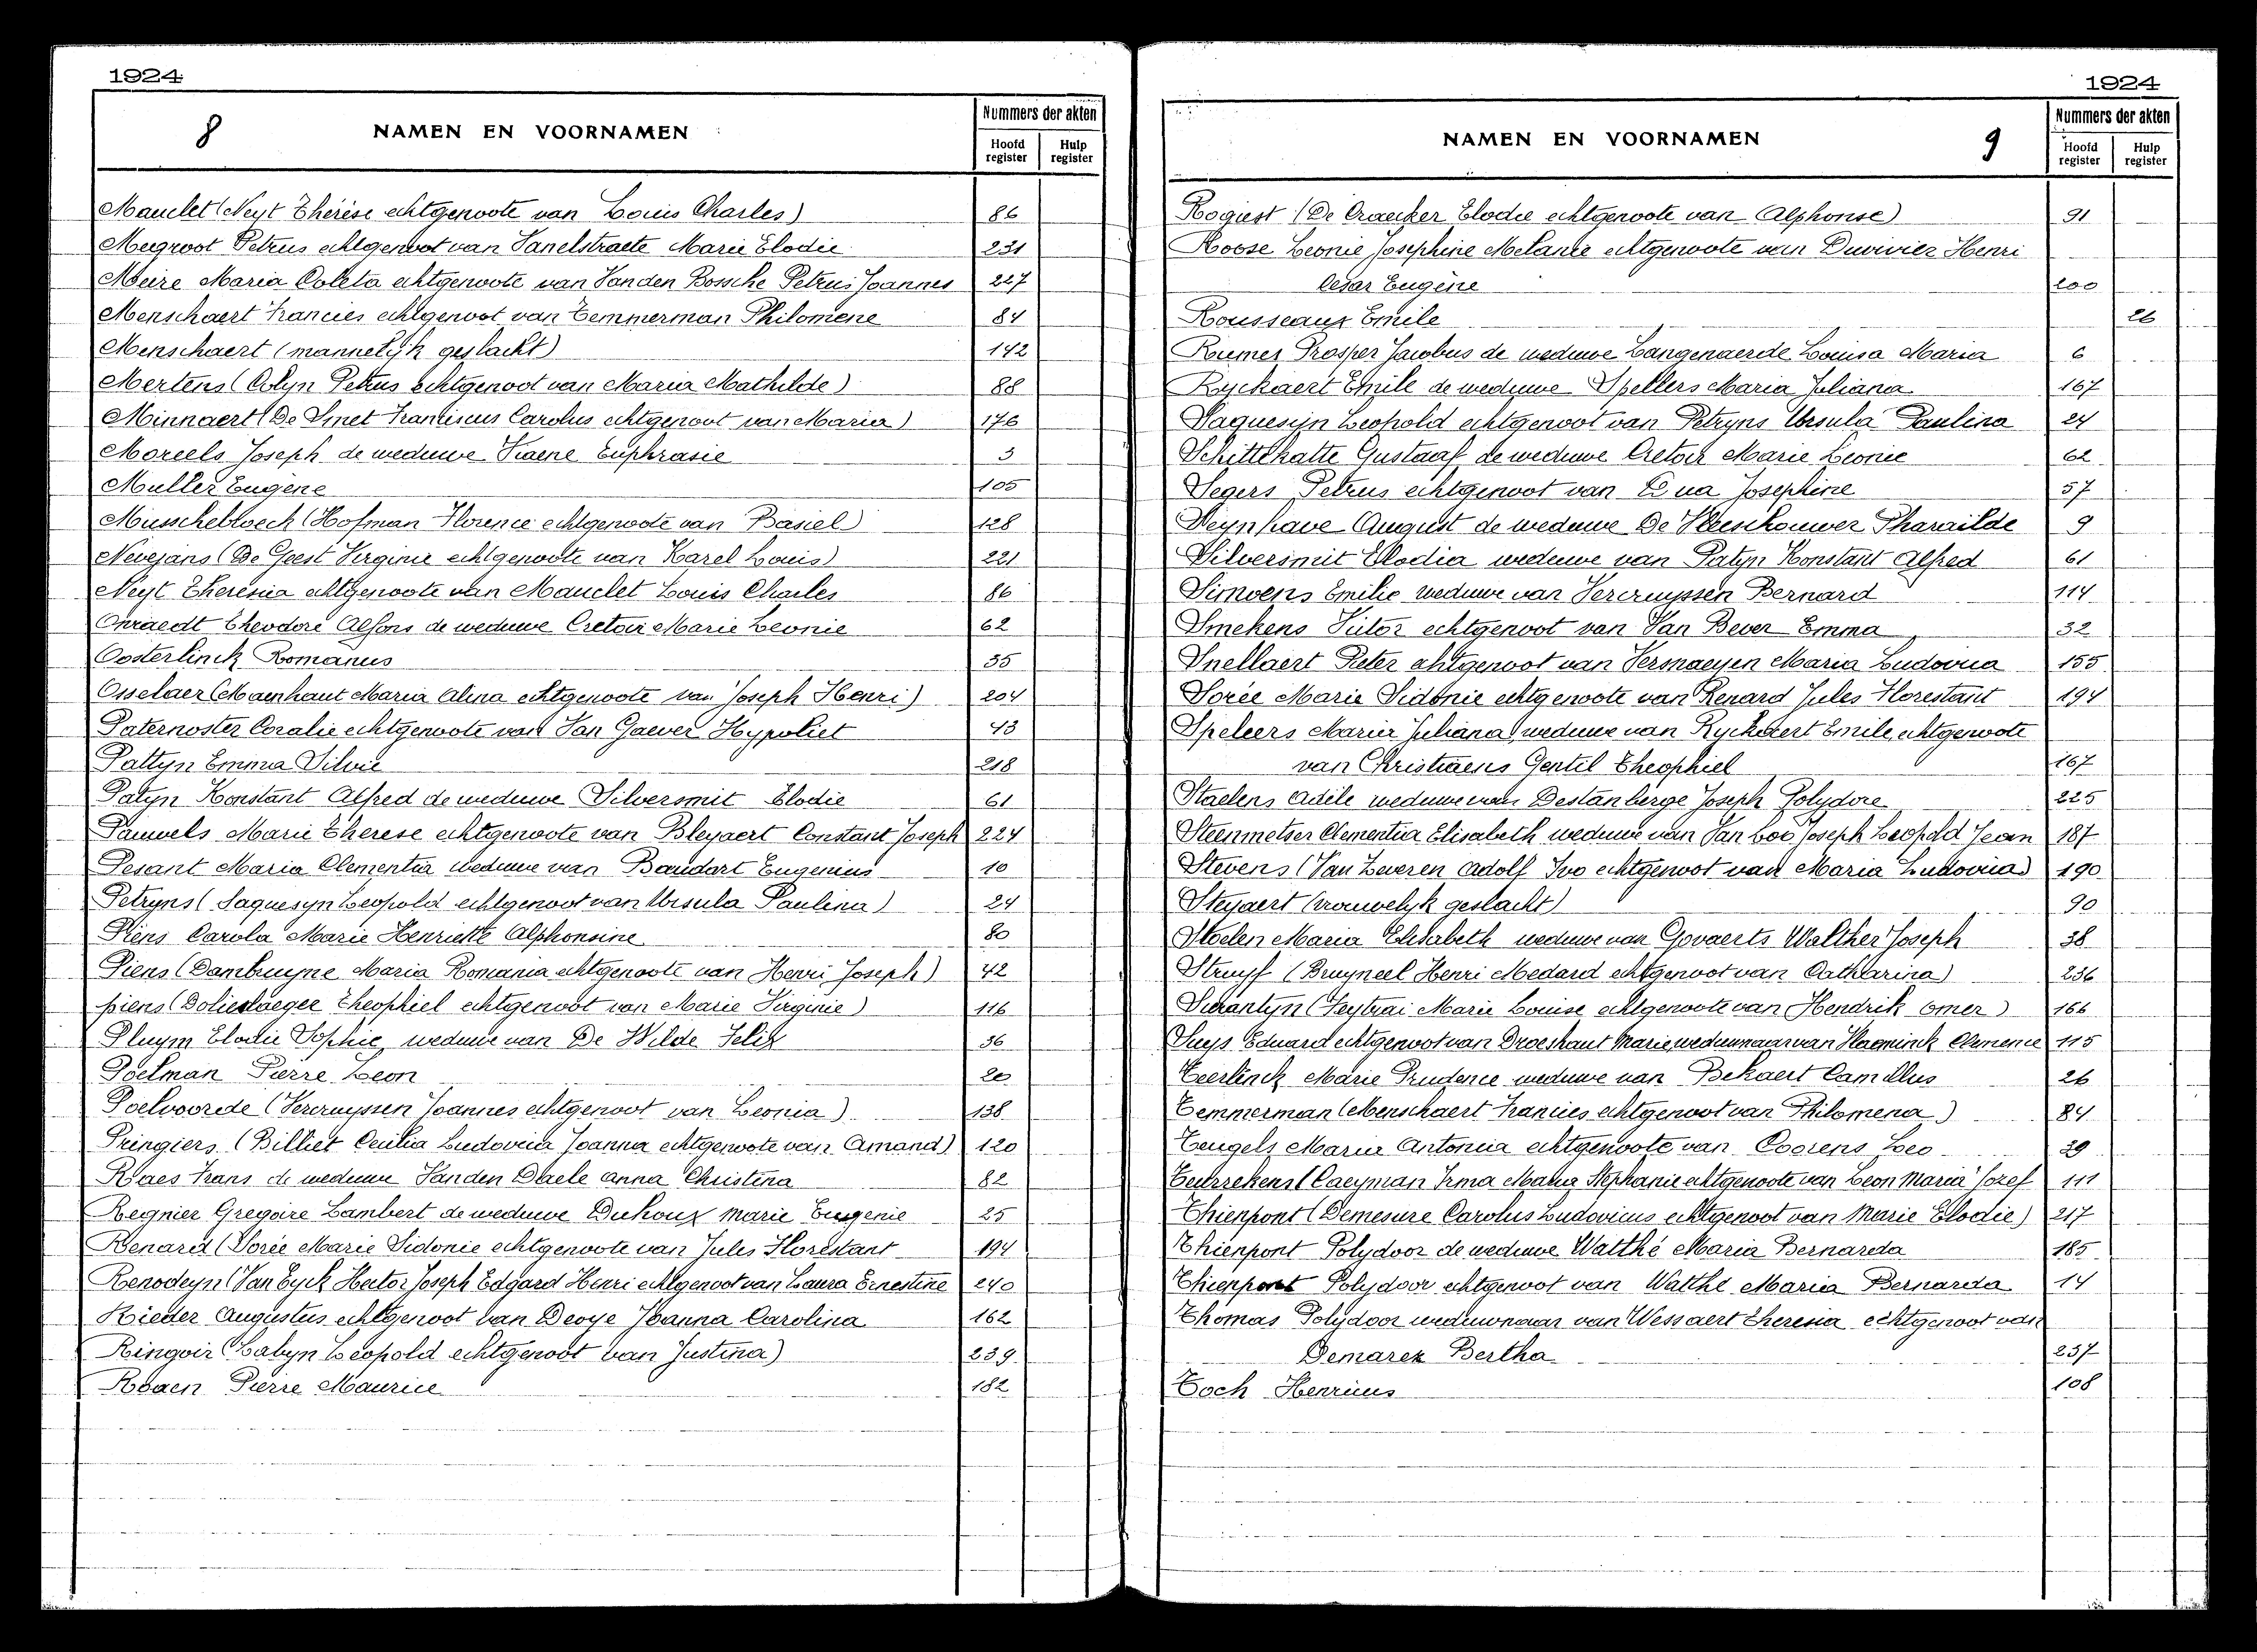 1924
8 NAMEN EN VOORNAMEN
Nummers der akten
Hoofd register Hulp register
Mauclet (Neyt Thérèse echtgenoote van Louis Charles) 86
Megroot Petrus echtgenoot van Vanelstraete Marie Elodie 231
Meire Maria Coleta echtgenoote van Vanden Bossche Petrus Joannes 227
Menschaert Francies echtgenoot van Temmerman Philomene 84
Menschaert (mannelijk geslacht) 142
Mertens (Colyn Petrus echtgenoot van Maria Mathilde) 88
Minnaert (De Smet Franciscus Carolus echtgenoot van Maria) 176
Moreels Joseph de weduwe Praene Euphrasie 3
Muller Eugène 105
Musschebloeck (Hofman Florence echtgenoote van Basiel) 128
Nevejans (De Geest Virginie echtgenoote van Karel Louis) 221
Neyt Theresia echtgenoote van Mauclet Louis Charles 86
Onraedt Theodore Alfons de weduwe Cretoir Marie Leonie 62
Oosterlinck Romanus 35
Osselaer (Maenhaut Maria Alina echtgenoote van Joseph Henri) 204
Paternoster Coralie echtgenoote van Van Gaever Hypoliet 43
Pattyn Emma Silvie 218
Patyn Konstant Alfred de weduwe Silversmit Elodie 61
Pauwels Marie Therese echtgenoote van Bleyaert Constant Joseph 224
Pesant Maria Clementia weduwe van Baudart Eugenius 10
Petryns (Saquesyn Leopold echtgenoot van Ursula Paulina) 24
Piens Carola Marie Henriette Alphonsine 80
Piens (Dambruyne Maria Romania echtgenoote van Henri Joseph) 42
piens (Dolieslaeger Theophiel echtgenoot van Marie Virginie) 116
Pluym Elodie Sophie, weduwe van De Wilde Felix 36
Poelman Pierre Leon 20
Poelvoorde (Vercruyssen Joannes echtgenoot van Leonia) 138
Pringiers (Billiet Cecilia Ludovica Joanna echtgenoote van Amand) 120
Raes Frans de weduwe Vanden Daele Anna Christina 82
Regnier Gregoire Lambert de weduwe Duhoux Marie Eugenie 25
Renard (Sorée Marie Sidonie echtgenoote van Jules Florestant 194
Renodeyn (Van Eyck Hector Joseph Edgard Henri echtgenoot van Laura Ernestine 240
Rieder Augustus echtgenoot van Devye Joanna Carolina 162
Ringoir (Labyn Leopold echtgenoot van Justina) 239
Roaen Pierre Maurice 182
1924
NAMEN EN VOORNAMEN 9
Nummers der akten
Hoofd register Hulp register
Rogiest (De Craecker Elodie echtgenoote van Alphonse) 91
Roose Leonie Josephine Melanie echtgenoote van Duvivier Henri
Cesar Eugène 200
Rousseaux Emile 26
Rumes Prosper Jacobus de weduwe Langenaerde Louisa Maria 6
Ryckaert Emile de weduwe Spellers Maria Juliana 167
Saquesyn Leopold echtgenoot van Petryns Ursula Paulina 24
Schittekatte Gustaaf de weduwe Cretoir Marie Leonie 62
Segers Petrus echtgenoot van Josephine 57
Seynhave August de weduwe De Vleeschouwer Pharaïlde 9
Silversmit Elodia weduwe van Patyn Konstant Alfred 61
Simoens Emilie weduwe van Vercruyssen Bernard 114
Smekens Victor echtgenoot van Van Bever Emma 32
Snellaert Pieter echtgenoot van Vermaeyen Maria Ludovica 155
Sorée Marie Sidonie echtgenoote van Renard Jules Florestant 194
Speleers Maria Juliana weduwe van Ryckaert Emile, echtgenoote
van Christiaens Gentil Theophiel 167
Staelens Adèle weduwe van Destanberge Joseph Polydore 225
Steenmetser Clementia Elisabeth weduwe van Van Loo Joseph Leopold Jean 187
Stevens (Van Zeveren Adolf Ivo echtgenoot van Maria Ludovica) 190
Steyaert (vrouwelijk geslacht) 90
Stoelen Maria Elisabeth weduwe van Govaerts Walther Joseph 38
Struyf (Bruyneel Henri Medard echtgenoot van Catharina) 236
Surantyn (Feytrai Marie Louise echtgenoote van Hendrik Omer) 166
Suys Eduard echtgenoot van Droeshaut Marie weduwnaar van Vlaeminck Clemence 115
Teerlinck Marie Prudence weduwe van Bekaert Camillus 26
Temmerman (Menschaert Francies echtgenoot van Philomena) 84
Teugels Maria Antonia echtgenoote van Coorens Leo 29
Teurrekens (Caeyman Irma Maria Stephanie echtgenoote van Leon Maria Jozef 111
Thienpont (Demesure Carolus Ludovicus echtgenoot van Marie Elodie) 217
Thienpont Polydoor de weduwe Watthé Maria Bernarda 185
Thienpont Polydoor echtgenoot van Watthé Maria Bernarda 14
Thomas Polydoor weduwnaar van Wessaert Theresia echtgenoot van
Demarez Bertha 237
Toch Henricus 108